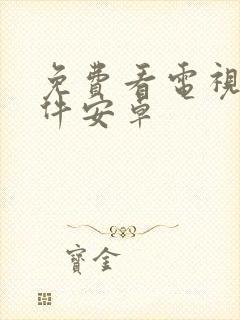 免費看電視
件安卓
寶金